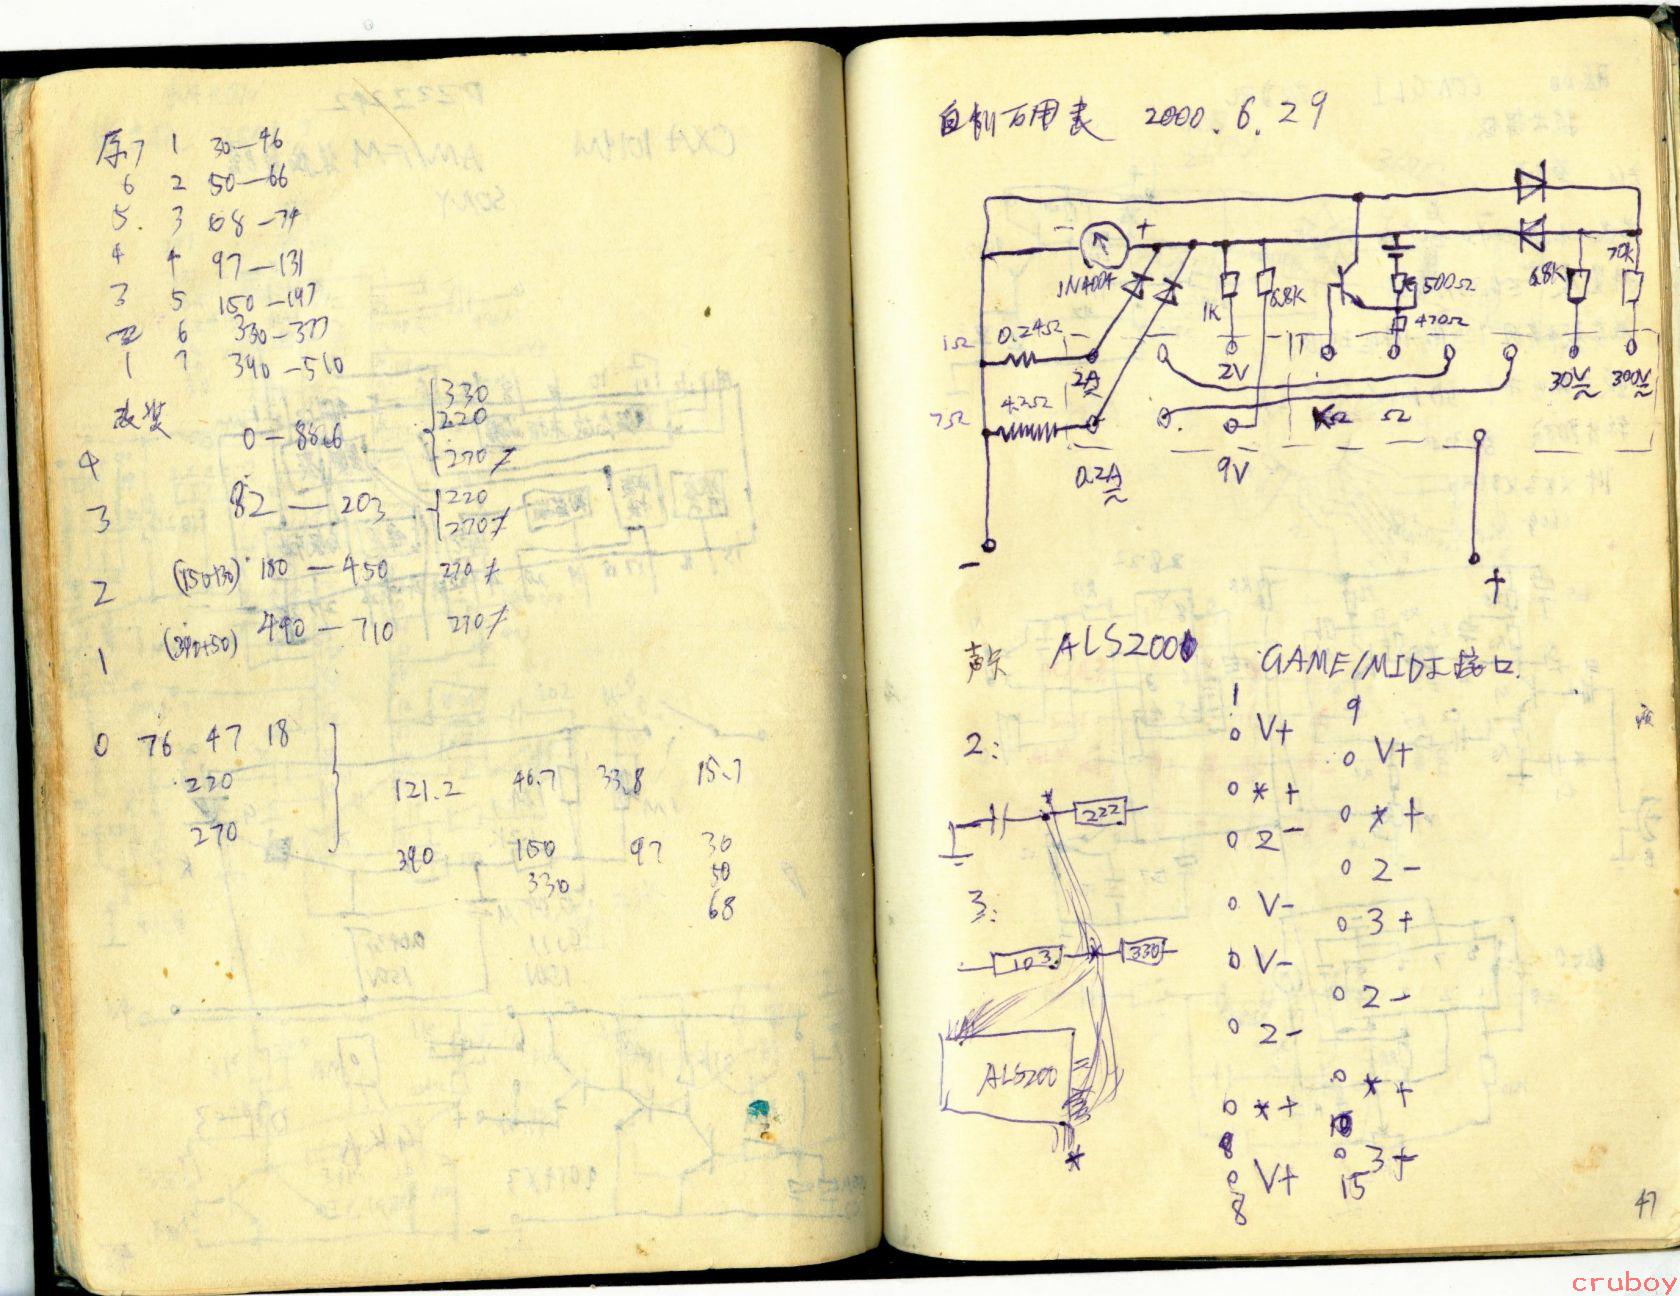 序7 1 30-46
6 2 50-66
5. 3 68-74
4 4 97-131
3 5 150-197
2 6 330-377
1 7 390-510
改装
4 0-88.6 330 220 270
3 82-203 220 270
2 (150+30) 180-450 270
1 (390+50) 490-710 270
0 76 47 18
220
270
121.2 46.7 33.8 15.7
390 150 97 30
330 50
68
自制万用表 2000.6.29
- +
1N4004
1K 6.8K 500Ω 6.8K 70K
470Ω
1Ω 0.24Ω
2A 2V 30V 300V
7Ω 4.2Ω
KΩ Ω
0.2A 9V
- +
声卡 ALS2000 GAME/MIDI接口
1 9
2: V+ V+
*+ *+
222
2- 2-
3: V- 3+
103 330
V- 2-
2- *+
ALS200
*+ 3+
8 V+ 15
8
*
47
cruboy